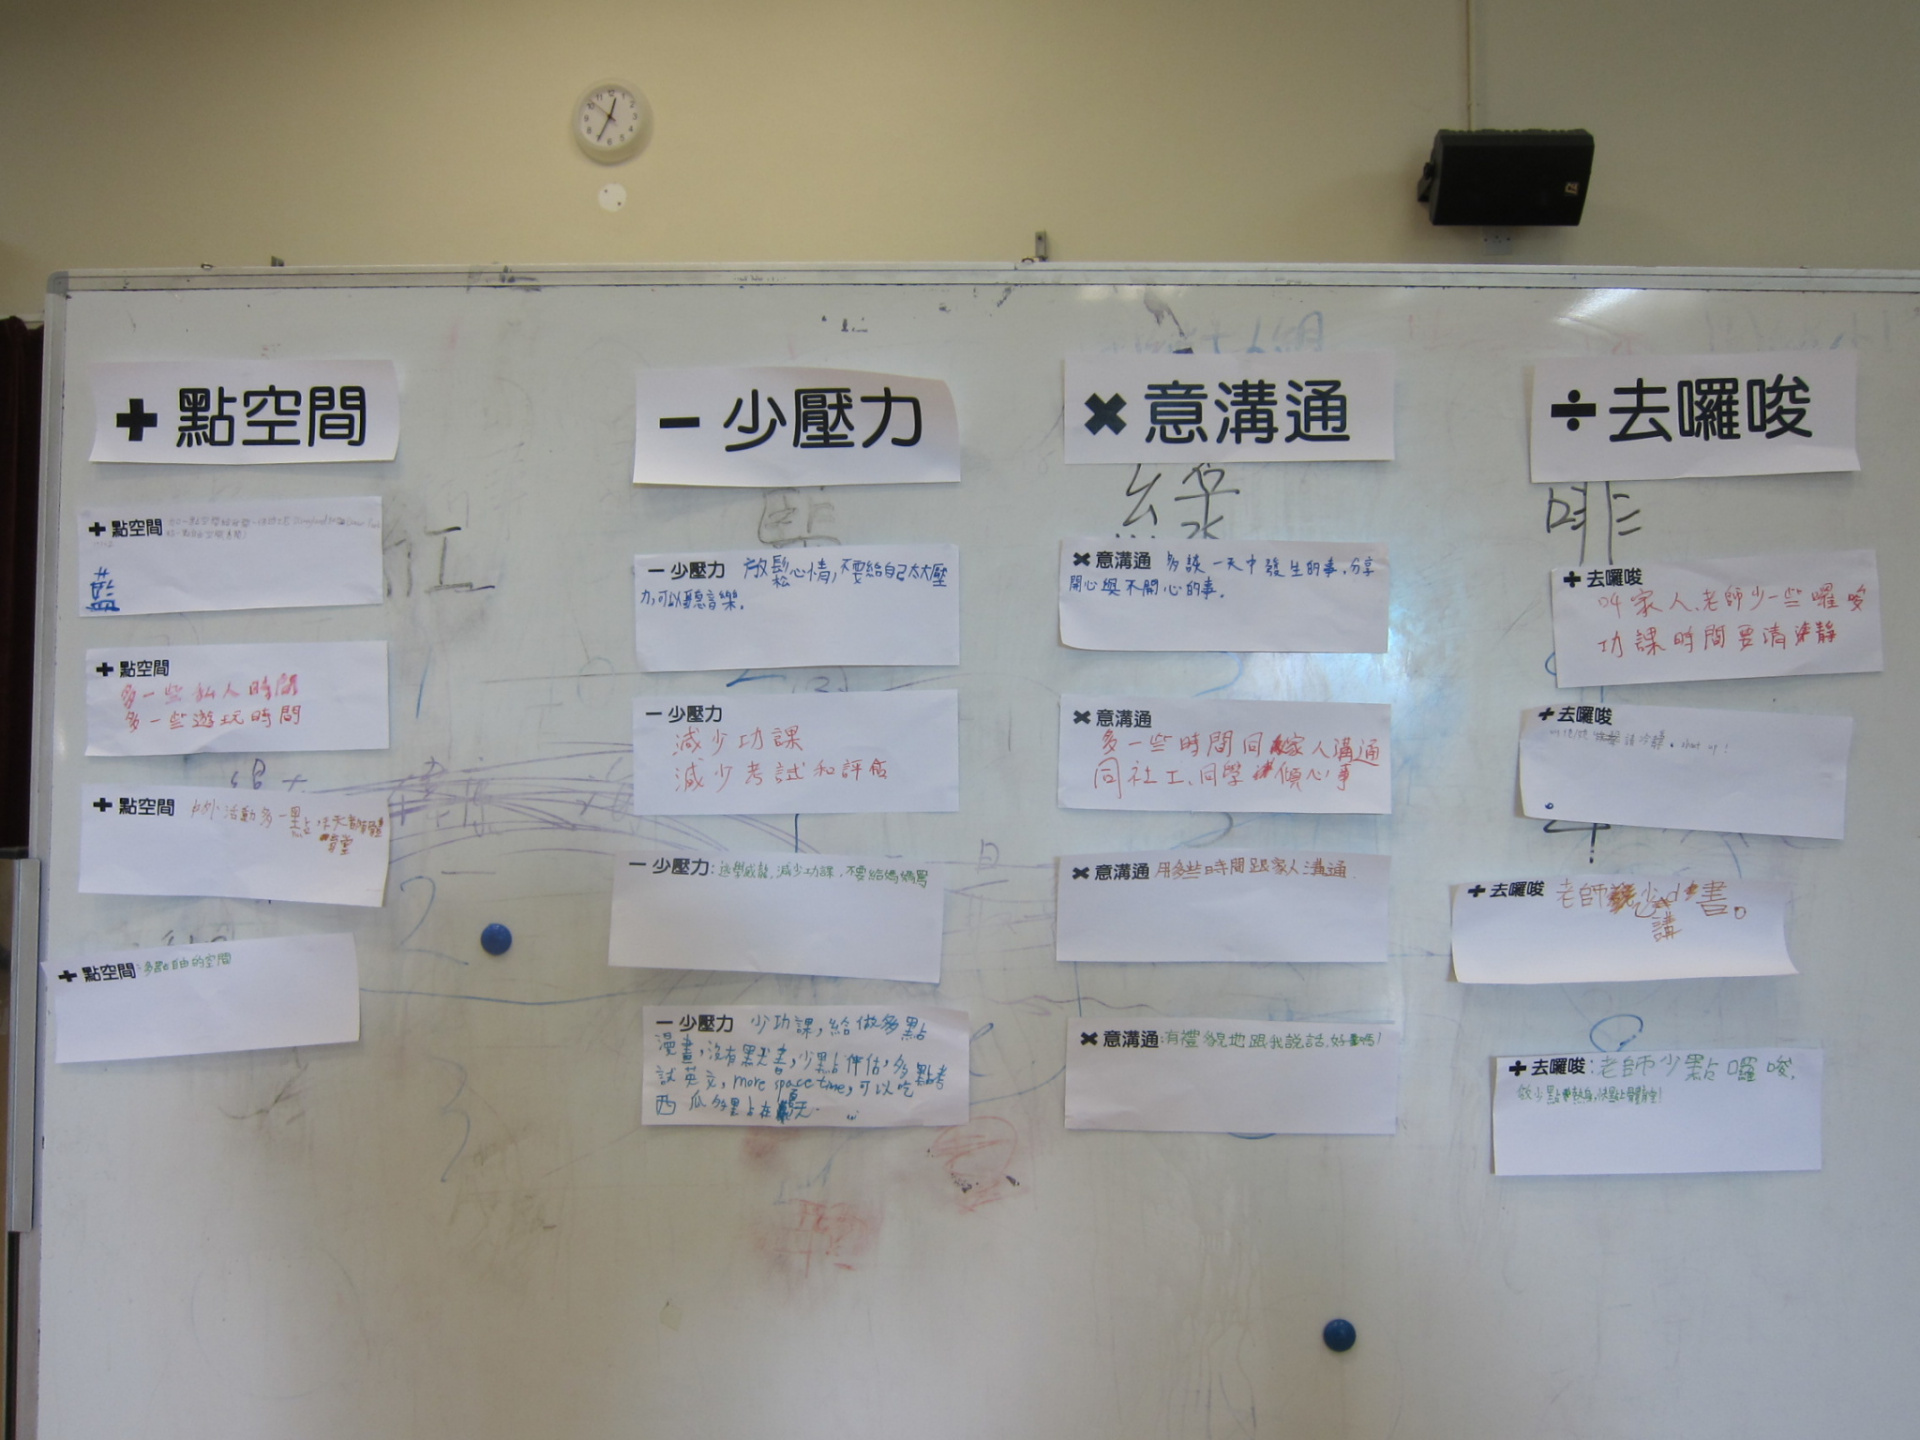 + 點空間
- 少壓力
× 意溝通
÷ 去囉唆
紅
綠
啡
+ 點空間
藍
+ 點空間
多一些私人時間
多一些遊玩時間
+ 點空間 戶外活動多一點
+ 點空間:多點自由的空間
- 少壓力 放鬆心情,不要給自己太大壓
力,可以聽音樂。
- 少壓力
減少功課
減少考試和評估
- 少壓力: 減少功課,不要給媽媽罵
- 少壓力 少功課,給做多點
漫畫,沒有默書,少點評估,多點考
試英文,more space time,可以吃
西瓜多點在
× 意溝通 多談一天中發生的事,分享
開心與不開心的事。
× 意溝通
多一些時間同家人溝通
同社工、同學傾心事
× 意溝通 用多些時間跟家人溝通.
× 意溝通:有禮貌地跟我說話,好嗎!
+ 去囉唆
叫家人、老師少一些囉唆
功課時間要清靜
+ 去囉唆
shut up!
+ 去囉唆 老師少講書。
+ 去囉唆:老師少點囉唆,
做少點熱身,快點上體育堂!
1
2
3